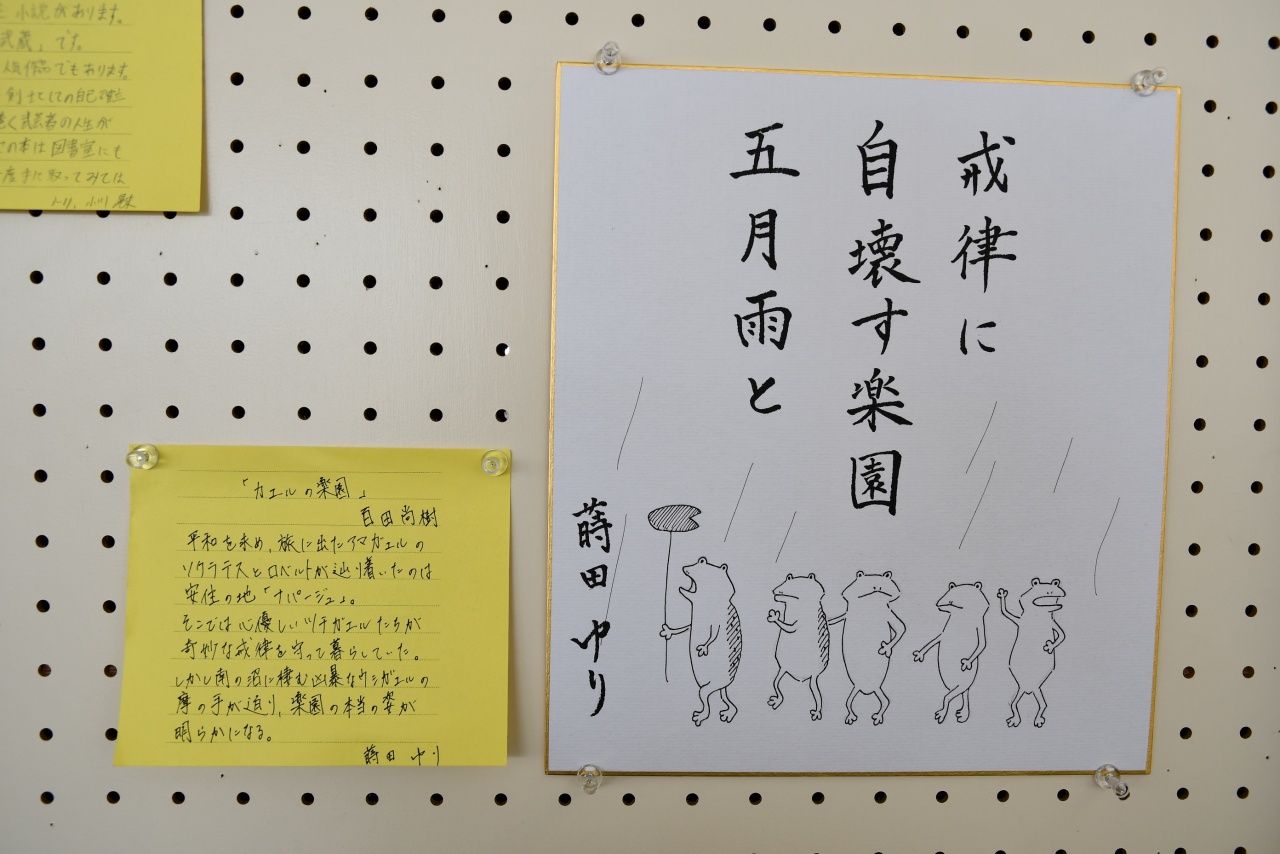 小説があります。
武蔵」です。
人気作品でもあります。
剣士としての自己確立
く武芸者の人生が
の本は図書室にも
度手に取ってみては
より、小川
「カエルの楽園」
百田尚樹
平和を求め、旅に出たアマガエルの
ソクラテスとロベルトが辿り着いたのは
安住の地「ナパージュ」。
そこでは心優しいツチガエルたちが
奇妙な戒律を守って暮らしていた。
しかし南の沼に棲む凶暴なウシガエルの
魔の手が迫り、楽園の本当の姿が
明らかになる。
蒔田 ゆり
戒律に
自壊す楽園
五月雨と
蒔田ゆり